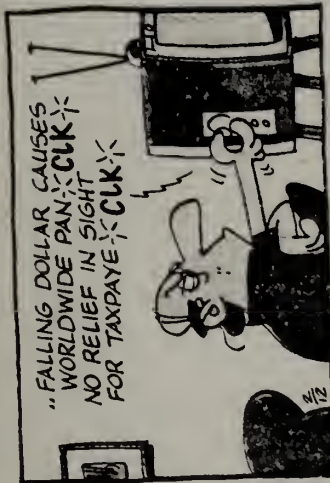 ..FALLING DOLLAR CAUSES
WORLDWIDE PAN CLK
NO RELIEF IN SIGHT
FOR TAXPAYE CLK
2/12